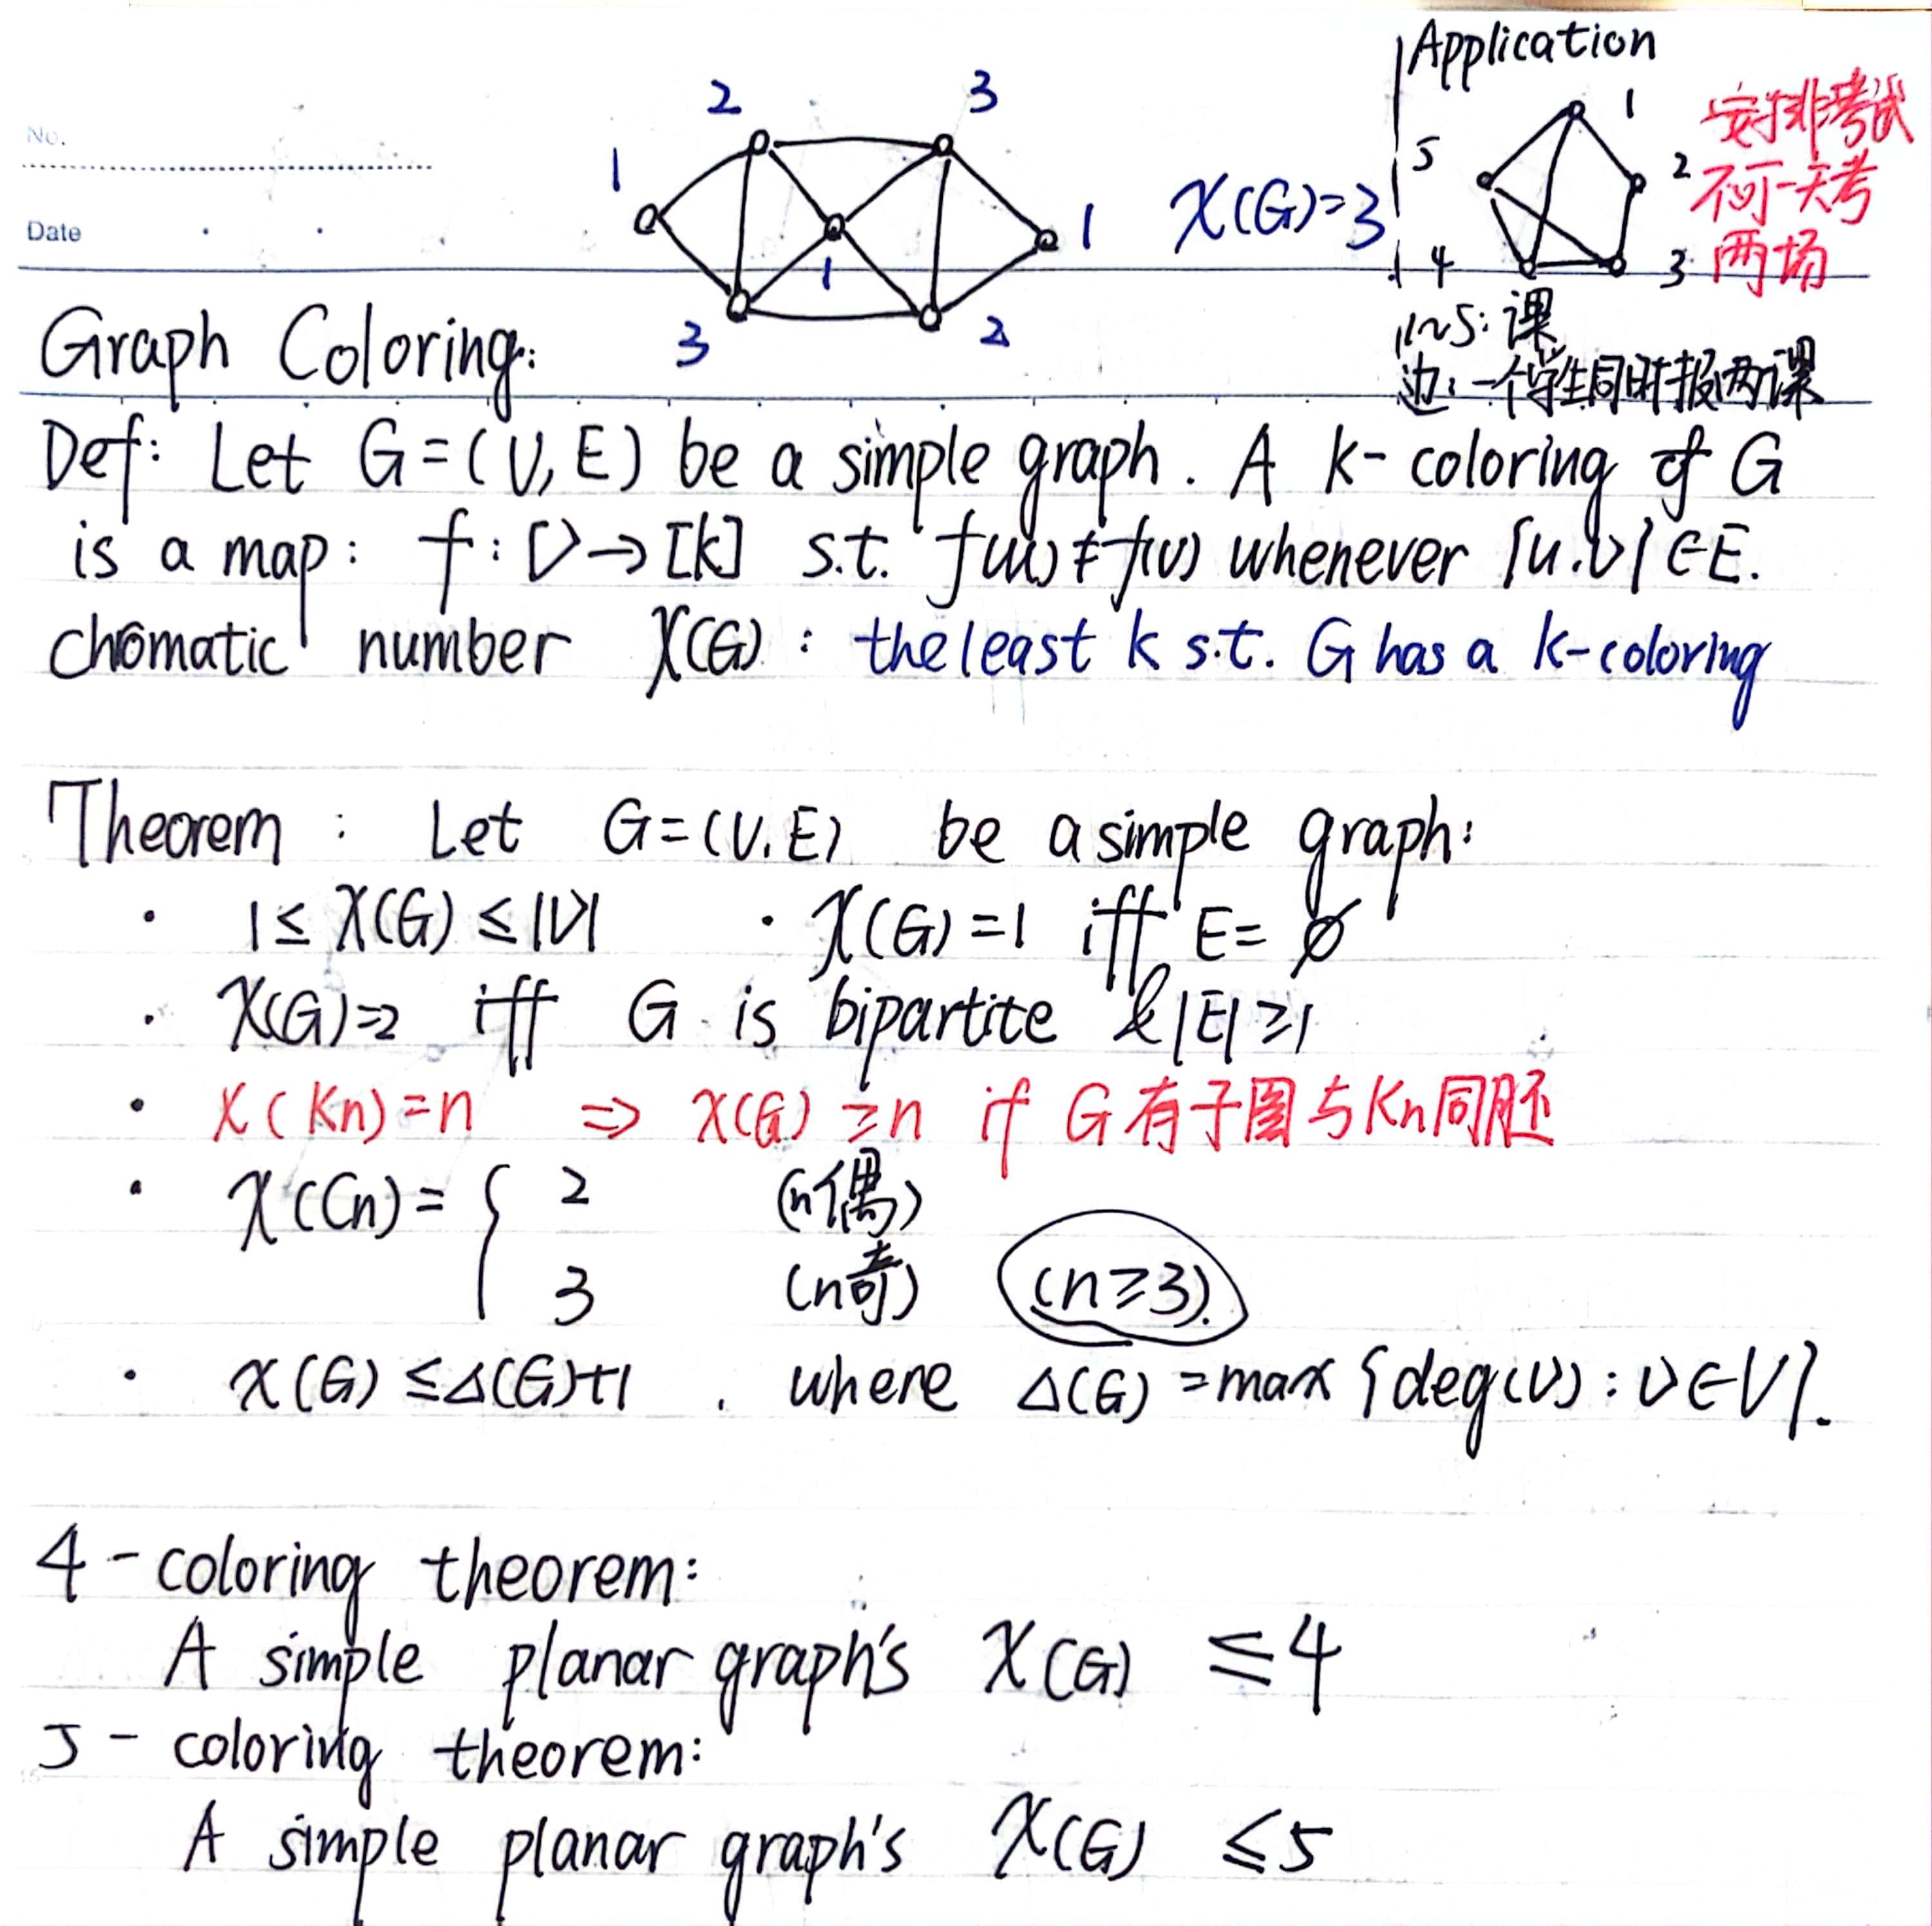 No.
Date
2 3
1
1
1
3 2
χ(G)=3
Application
1
5 2
4 3
安排考试
不可一天考
两场
1~5: 课
边: 一个学生同时报两课
Graph Coloring:
Def: Let G=(V,E) be a simple graph. A k-coloring of G
is a map: f: V→[k] s.t. f(u)≠f(v) whenever {u,v}∈E.
chomatic number χ(G): the least k s.t. G has a k-coloring
Theorem: Let G=(V,E) be a simple graph:
· 1≤χ(G)≤|V| · χ(G)=1 iff E=∅
· χ(G)=2 iff G is bipartite & |E|≥1
· χ(Kn)=n ⇒ χ(G)≥n if G有子图与Kn同胚
· χ(Cn)={ 2 (n偶)
3 (n奇) (n≥3).
· χ(G)≤Δ(G)+1. where Δ(G)=max{deg(v): v∈V}.
4-coloring theorem:
A simple planar graph's χ(G) ≤4
5-coloring theorem:
A simple planar graph's χ(G) ≤5